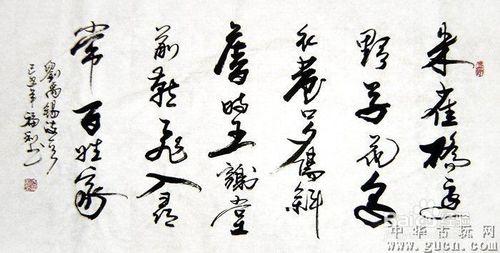 朱雀橋邊
野草花烏
衣巷口夕陽斜
舊時王謝堂
前燕飛入尋
常百姓家
劉禹錫詩
己丑年
Baidu经验
中华古玩网
www.gucn.com